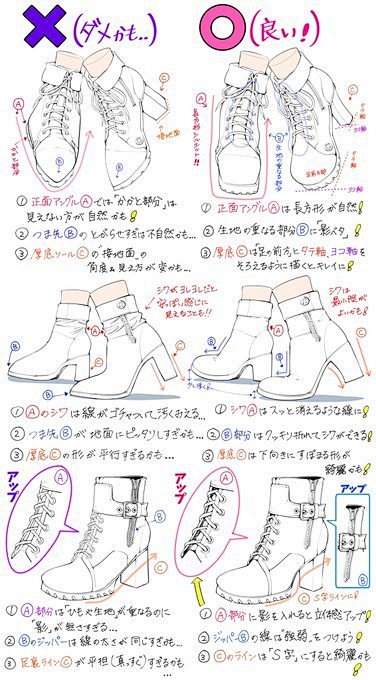 ✕(ダメかも…)
〇(良い!)
Ⓐ
Ⓒ
接地面
かかと部分
Ⓑ
Ⓐ
長方形シルエット!!
Ⓑ
生地の重なる部分
Ⓒ
タテ軸
ヨコ軸
足前方部
タテ軸
ヨコ軸
① 正面アングルⒶでは「かかと部分」は
見えない方が自然かも!
② つま先Ⓑのとがらせすぎは不自然かも…
③ 厚底ソールⒸの"接地面"の
角度&見え方が変かも…
① 正面アングルⒶは長方形が自然!
② 生地の重なる部分Ⓑに影〆タ。
③ 厚底Ⓒは「足の前方」とタテ軸、ヨコ軸を
そろえるように描くとキレイに!
シワがヨレヨレだと
安っぽい感じに
見えることも!!
Ⓐ
Ⓑ
Ⓒ
シワは
最小限が
よいかも!
Ⓐ
Ⓑ
Ⓒ
① Ⓐのシワは線がゴチャついて汚くみえる…
② つま先Ⓑが地面にピッタリしすぎかも…
③ 厚底Ⓒの形が平行すぎるかも…
① シワⒶはスッと消えるような線に!
② Ⓑ部分はクッキリ折れてシワができる!
③ 厚底Ⓒは下向きにすぼまる形が
綺麗かも!
アップ
Ⓐ
Ⓑ
Ⓒ
アップ
Ⓐ
アップ
Ⓑ
Ⓒ S字ラインに!
① Ⓐ部分は「ひもや生地」が重なるのに
「影」が無さすぎる…
② Ⓑのジッパーは線の太さが同じすぎかも…
③ 足裏ラインⒸが平坦(真っすぐ)すぎるかも
…
① Ⓐ部分に影を入れると立体感アップ!
② ジッパーⒷの線は"強弱"をつけよう!
③ Ⓒのラインは「S字」にすると綺麗かも!